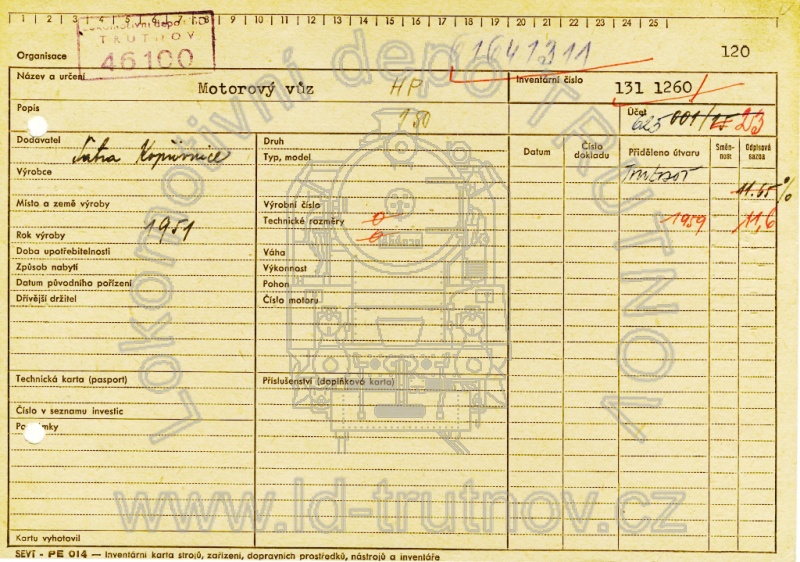 1 2 3 4 5 6 7 8 9 10 11 12 13 14 15 16 17 18 19 20 21 22 23 24 25
Lokomotivní depo ČSD
TRUTNOV
46100
Organisace
120
Název a určení
Motorový vůz
HP
Inventární číslo
131 1260
Popis
150
Účet
001/
23
Dodavatel
Tatra Kopřivnice
Druh
Typ, model
Datum
Číslo dokladu
Přiděleno útvaru
Směnnost
Odpisová sazba
Trutnov
Výrobce
11.65 %
Místo a země výroby
Výrobní číslo
Technické rozměry
1959
11,6
Rok výroby
1951
Doba upotřebitelnosti
Váha
Způsob nabytí
Výkonnost
Datum původního pořízení
Pohon
Dřívější držitel
Číslo motoru
Technická karta (pasport)
Příslušenství (doplňková karta)
Číslo v seznamu investic
Poznámky
Kartu vyhotovil
SEVT - PE 014 — Inventární karta strojů, zařízení, dopravních prostředků, nástrojů a inventáře
Lokomotivní depo TRUTNOV
www.ld-trutnov.cz